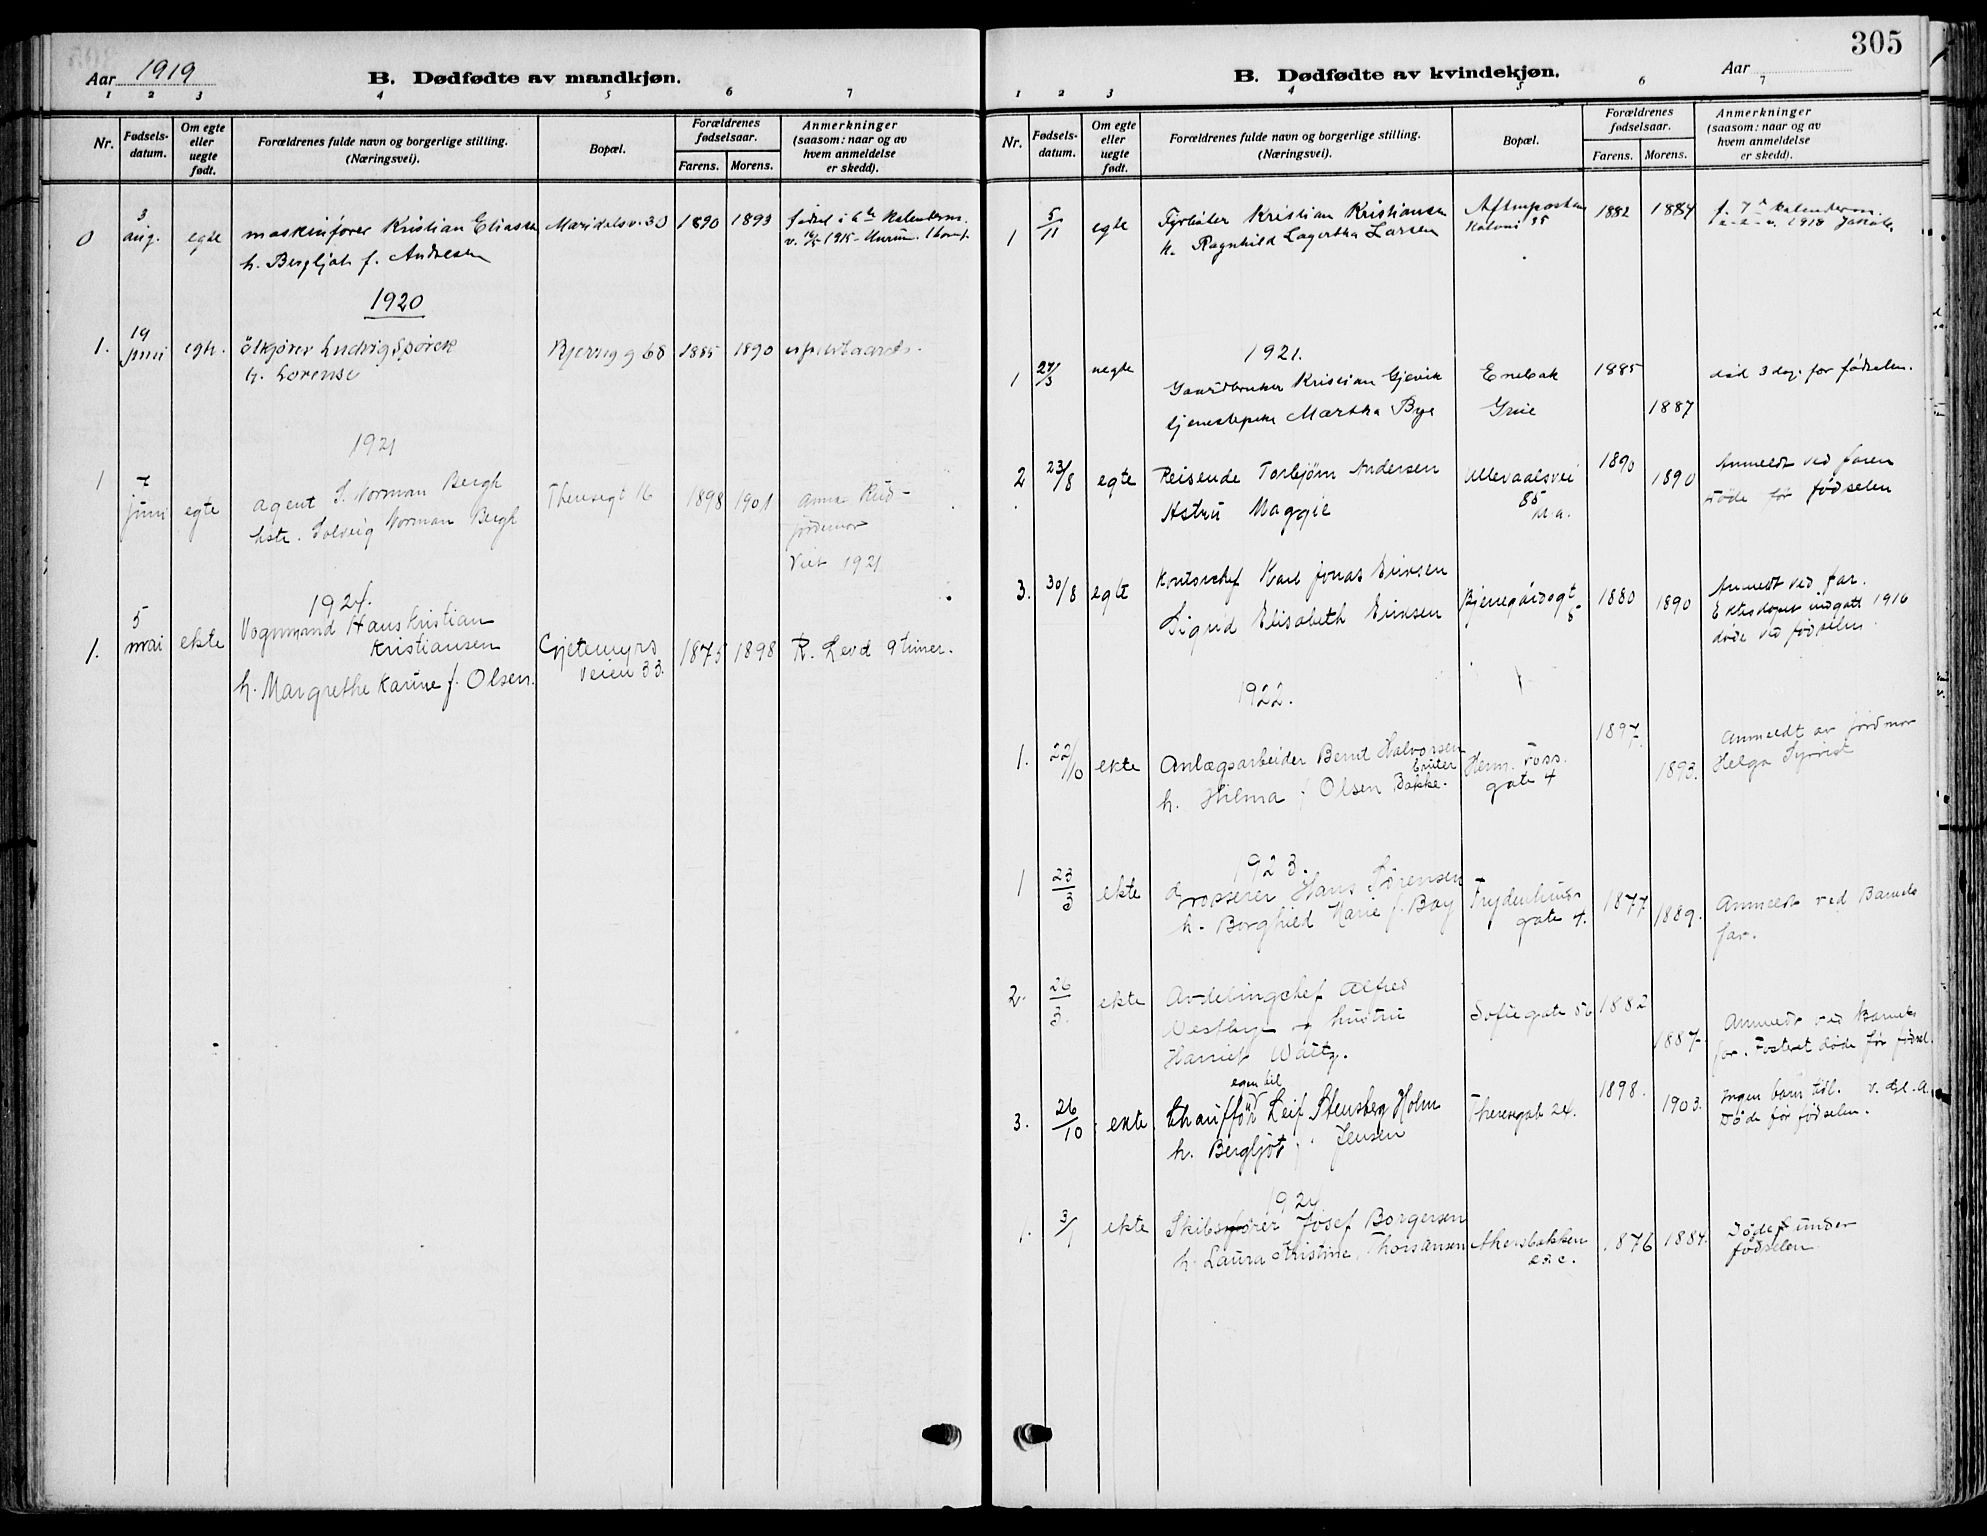 305
Aar 1919
B. Dødfødte av mandkjøn.
1 2 3 4 5 6 7
Nr.
Fødsels-
datum.
Om egte
eller
uegte
født.
Forældrenes fulde navn og borgerlige stilling.
(Næringsvei).
Bopæl.
Forældrenes
fødselsaar.
Farens. Morens.
Anmerkninger
(saasom: naar og av
hvem anmeldelse
er skedd).
0 3 aug. egte maskinfører Kristian Eliassen Maridalsv. 30 1890 1893
h. Bergljot f. Andresen
1920
1. 19 juni Ølkjører Ludvig 68 1885 1890
h. Lorense
1921
1 7 juni egte agent S. Norman Bergh Theresegt 16 1898 1901 Anna Rud-
hstr. Solveig Norman Bergh jordmor
Viet 1921
1924.
1. 5 mai ekte Vognmand Hans Kristian
Kristiansen Gjetemyrs 1875 1898 R. Levd 9 timer.
veien 33.
h. Margrethe Karine f. Olsen.
B. Dødfødte av kvindekjøn.
Aar
1 2 3 4 5 6 7
Nr.
Fødsels-
datum.
Om egte
eller
uegte
født.
Forældrenes fulde navn og borgerlige stilling.
(Næringsvei).
Bopæl.
Forældrenes
fødselsaar.
Farens. Morens.
Anmerkninger
(saasom: naar og av
hvem anmeldelse
er skedd).
1 5/11 egte Fyrbøter Kristian Kristiansen Aftenposten 1882 1884
h. Ragnhild Lagertha Larsen 1918
1921.
1 27/3 uegte Gaardbruker Kristian Gjevik Enebak 1885 død 3 dag. før fødselen.
tjenestepike Martha Bye Grue 1887
2 23/8 egte Reisende Torbjørn Andersen Ullevaalsvei 1890 1890 Anmeldt ved faren
Astri Maggie 85 døde før fødselen
3. 30/8 egte Kontorchef Karl Jonas Eriksen Bjerregårdsgt 1880 1890 Anmeldt ved far.
Sigrid Elisabeth Eriksen 1916
døde ved fødselen
1922.
1. 22/10 ekte Anlægsarbeider Bernt Halvorsen Herm. Foss. 1897. 1893. Anmeldt av jordmor
h. Hilma f Olsen Bakke. gate 4 Helga
1923.
1 23/3 ekte Grosserer Hans Sørensen Frydenlunds 1877 1889. Anmeldt ved Barnets
h. Borghild Marie f. Bay gate 4. far.
2. 26/3. ekte Avdelingchef Alfred Sofiegate 56 1882
Westbye + hustru 1887. Anmeldt ved Barnets
Harriet Waltz. far. Fosteret døde før fødsel.
3. 26/10 ekte egen bil
Chauffør Leif Stensberg Holm Theresegate 24. 1898. 1903. Ingen barn tidl. v. dgl. A.
h. Bergljot f. Jensen Døde før fødselen.
1924
1. 3/1 ekte Skibsfører Josef Borgersen Akersbakken 1876 1884. Døde under
h. Laura Kristine fødselen